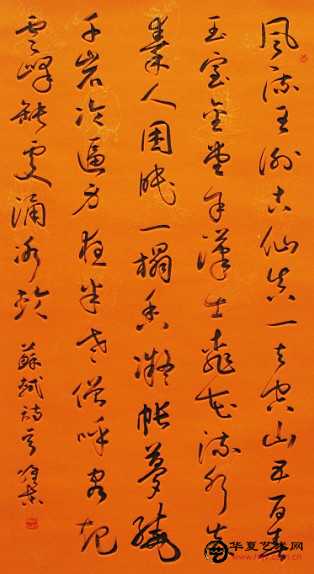 風流王謝古仙真一去空山五百春
玉室金堂餘漢士桃花流水失
秦人困眠一榻香凝帳夢繞
千岩冷逼身夜半老僧呼客起
雲峰缺處涌冰輪
蘇軾詩
华夏艺术网